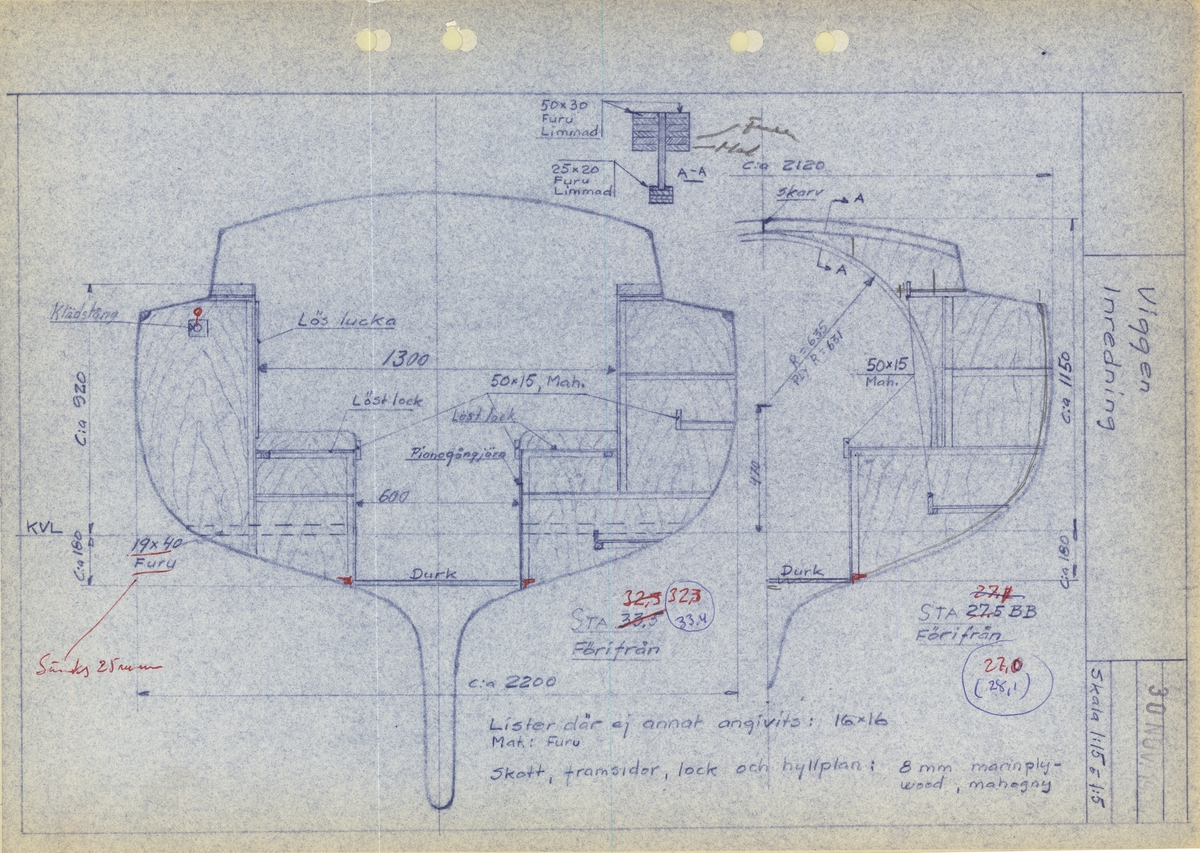 50x30
Furu
Limmad
25x20
Furu
Limmad
A-A
Furu
Mah
c:a 2120
skarv
A
A
Klädstång
Lös lucka
1300
R=635
PLY R=631
50x15
Mah.
50x15, Mah.
Löst lock
Löst lock
Pianogångjärn
600
C:a 920
C:a 1150
470
KVL
19x40
Furu
C:a 180
C:a 180
Durk
Durk
Sänks 25mm
32,5 32,3
STA 33,5 33,4
Förifrån
27,1
STA 27,5 BB
Förifrån
27,0
(28,1)
c:a 2200
Lister där ej annat angivits: 16x16
Mat: Furu
Skott, framsidor, lock och hyllplan: 8 mm marinply-
wood, mahogny
Viggen
Inredning
Skala 1:15 o 1:5